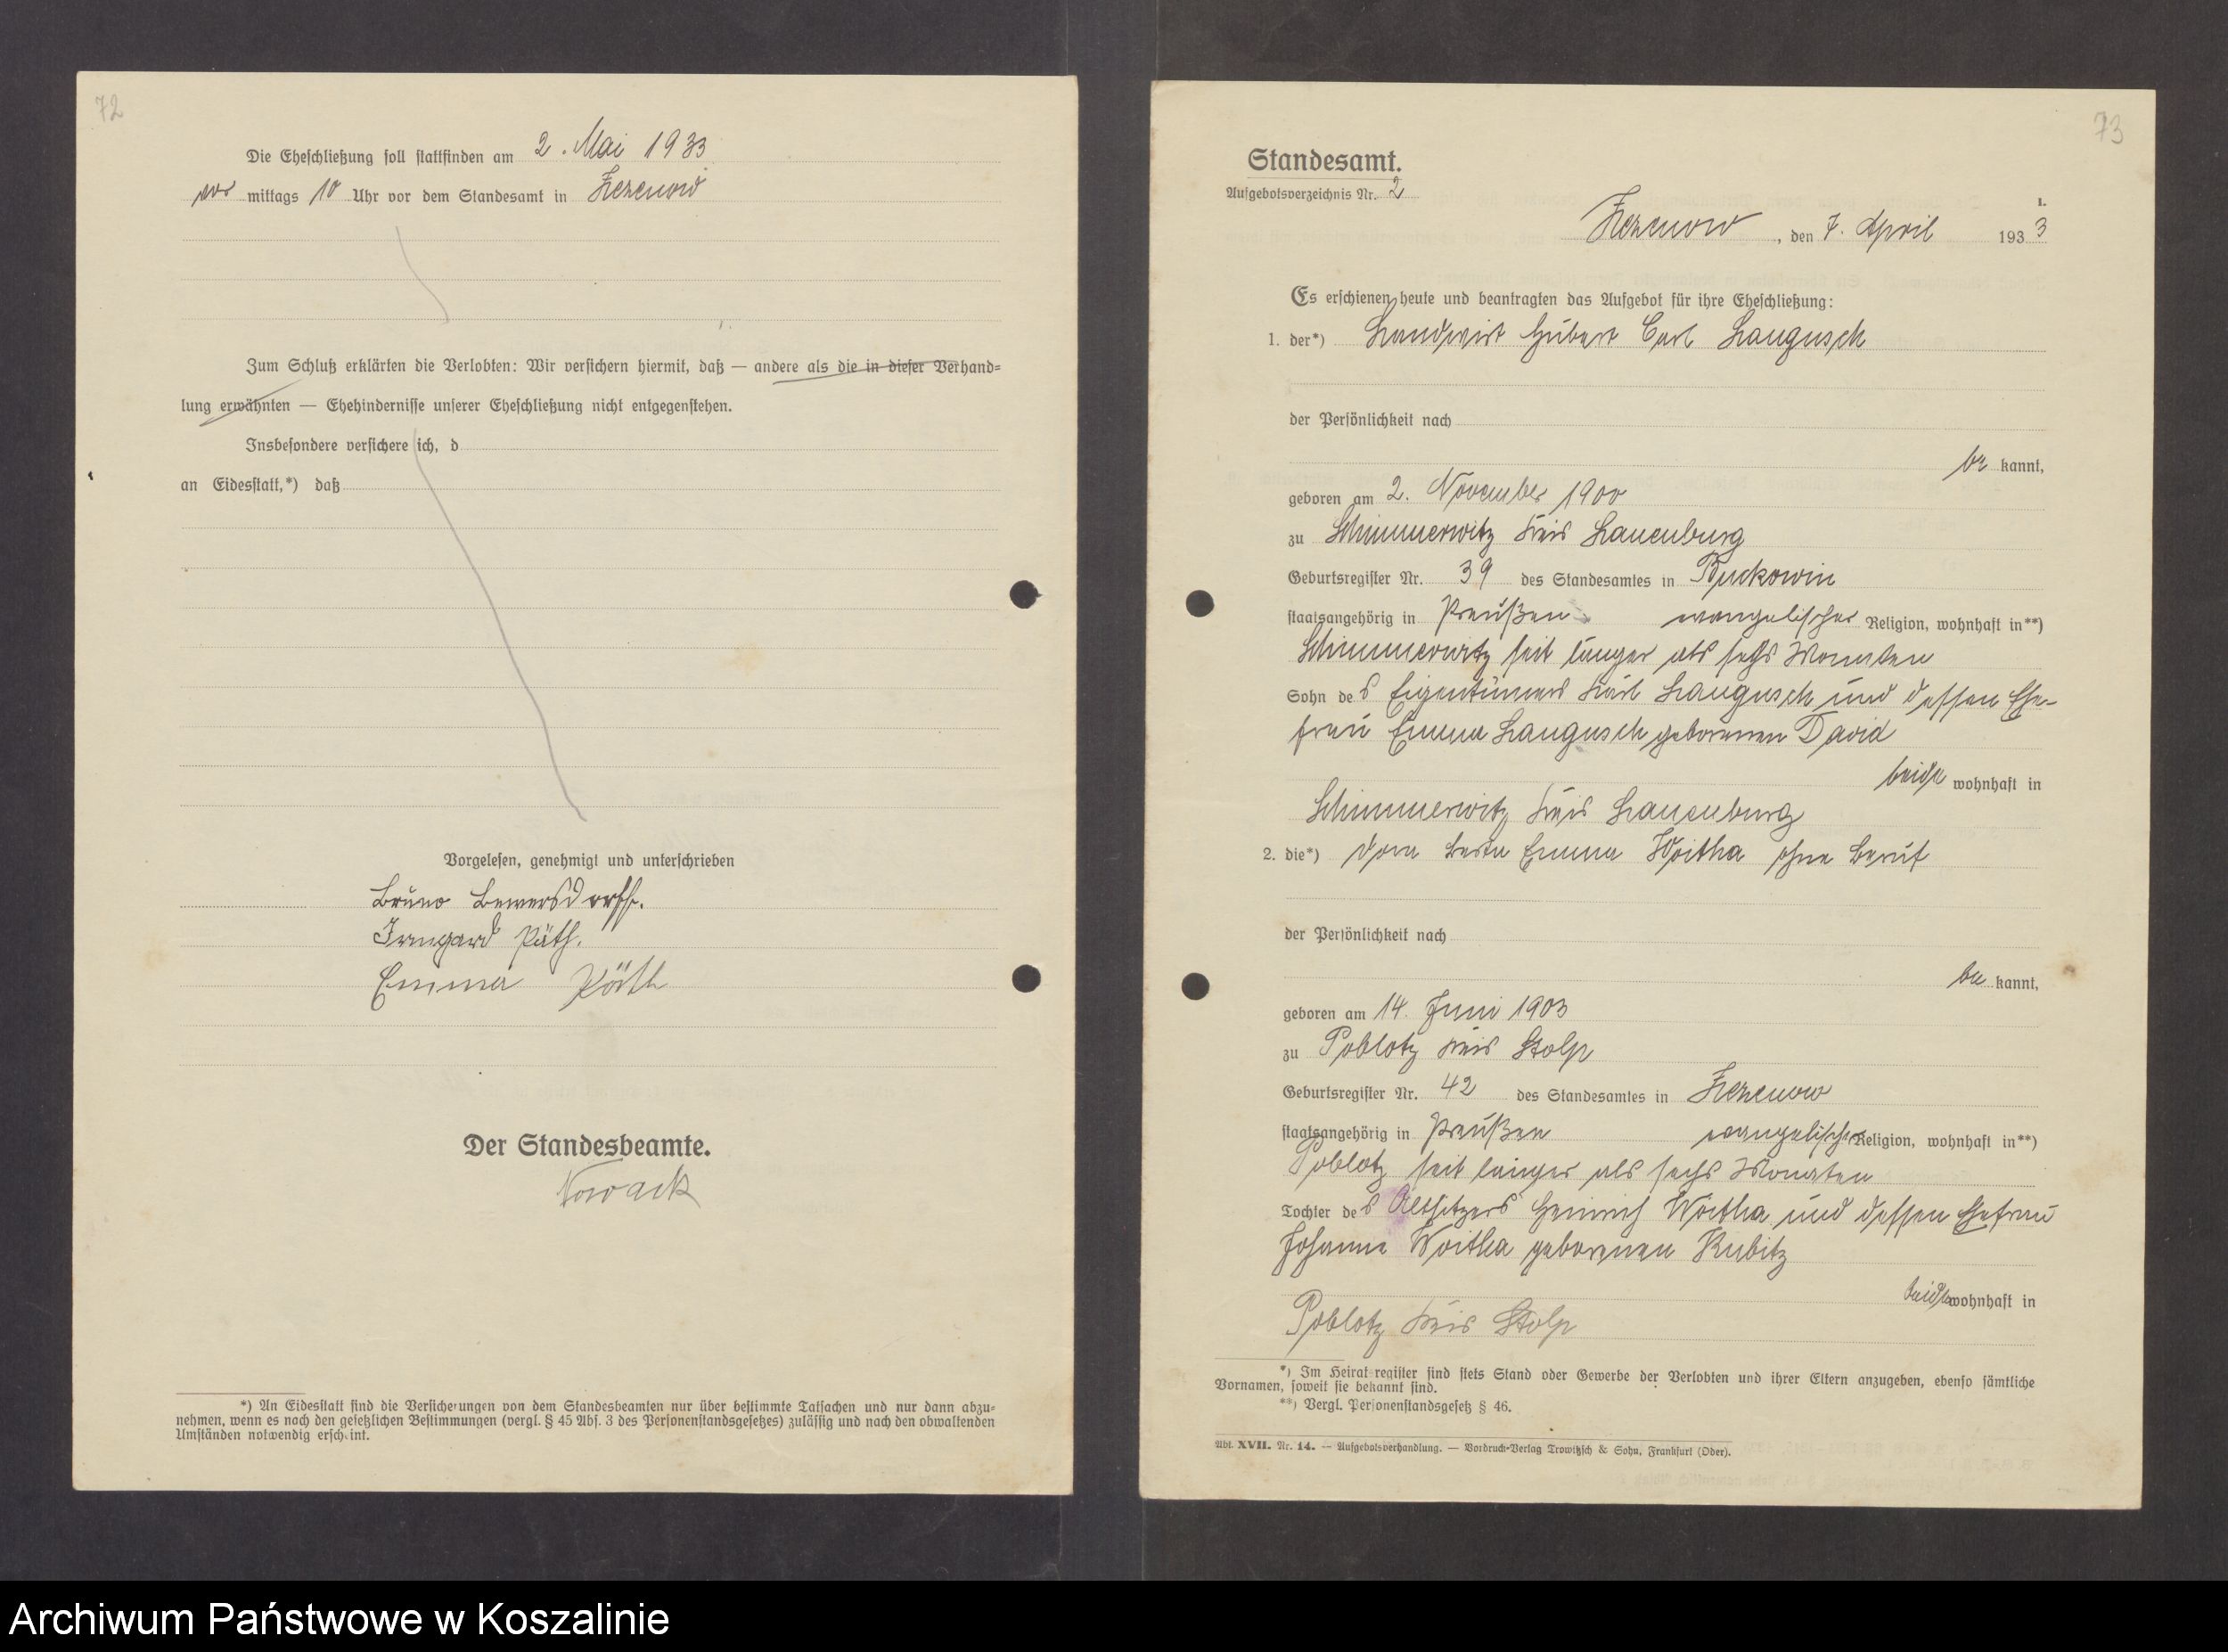 72
Die Eheschließung soll stattfinden am 2. Mai 1933
vor mittags 10 Uhr vor dem Standesamt in Zezenow
Zum Schluß erklärten die Verlobten: Wir versichern hiermit, daß — andere als die in dieser Verhand=
lung erwähnten — Ehehindernisse unserer Eheschließung nicht entgegenstehen.
Insbesondere versichere ich, d
an Eidesstatt,*) daß
Vorgelesen, genehmigt und unterschrieben
Bruno Bewersdorff.
Irmgard Päth.
Emma Päth
Der Standesbeamte.
Nowack
*) An Eidesstatt sind die Versicherungen von dem Standesbeamten nur über bestimmte Tatsachen und nur dann abzu=
nehmen, wenn es nach den gesetzlichen Bestimmungen (vergl. § 45 Abs. 3 des Personenstandsgesetzes) zulässig und nach den obwaltenden
Umständen notwendig erscheint.
73
Standesamt.
Aufgebotsverzeichnis Nr. 2
1.
Zezenow, den 7. April 1933
Es erschienen heute und beantragten das Aufgebot für ihre Eheschließung:
1. der*) Landwirt Hubert Carl Langusch
der Persönlichkeit nach
be kannt,
geboren am 2. November 1900
zu Schimmerwitz Kreis Lauenburg
Geburtsregister Nr. 39 des Standesamtes in Buckowin
staatsangehörig in Preußen evangelischer Religion, wohnhaft in**)
Schimmerwitz seit länger als sechs Monaten
Sohn des Eigentümers Karl Langusch und dessen Ehe-
frau Emma Langusch geborenen David
beide wohnhaft in
Schimmerwitz Kreis Lauenburg
2. die*) Berta Emma Woitha ohne Beruf
der Persönlichkeit nach
be kannt,
geboren am 14. Juni 1903
zu Poblotz Kreis Stolp
Geburtsregister Nr. 42 des Standesamtes in Zezenow
staatsangehörig in Preußen evangelischer Religion, wohnhaft in**)
Poblotz seit länger als sechs Monaten
Tochter des Altsitzers Heinrich Woitha und dessen Ehefrau
Johanne Woitha geborenen Kubitz
beide wohnhaft in
Poblotz Kreis Stolp
*) Im Heiratsregister sind stets Stand oder Gewerbe der Verlobten und ihrer Eltern anzugeben, ebenso sämtliche
Vornamen, soweit sie bekannt sind.
**) Vergl. Personenstandsgesetz § 46.
Abt. XVII. Nr. 14. — Aufgebotsverhandlung. — Vordruck-Verlag Trowitzsch & Sohn, Frankfurt (Oder).
Archiwum Państwowe w Koszalinie